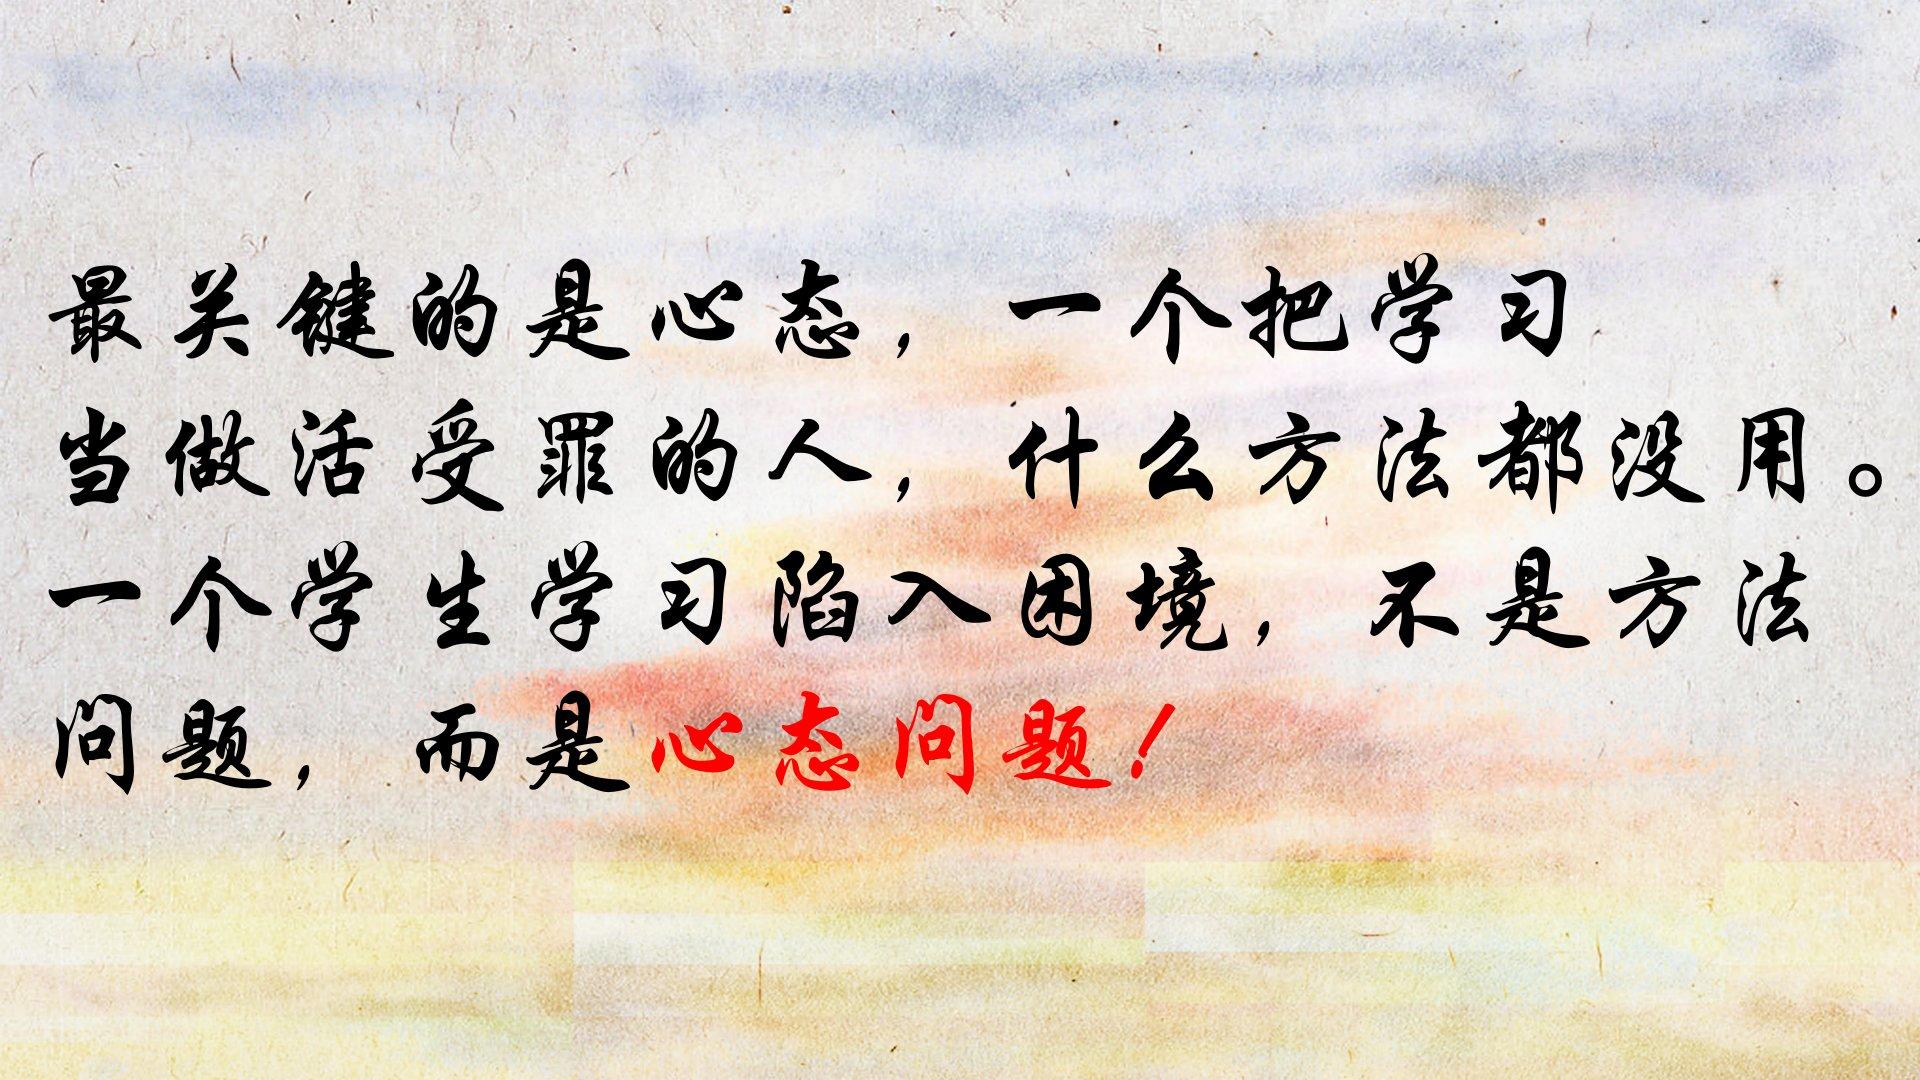 最关键的是心态，一个把学习
当做活受罪的人，什么方法都没用。
一个学生学习陷入困境，不是方法
问题，而是心态问题！